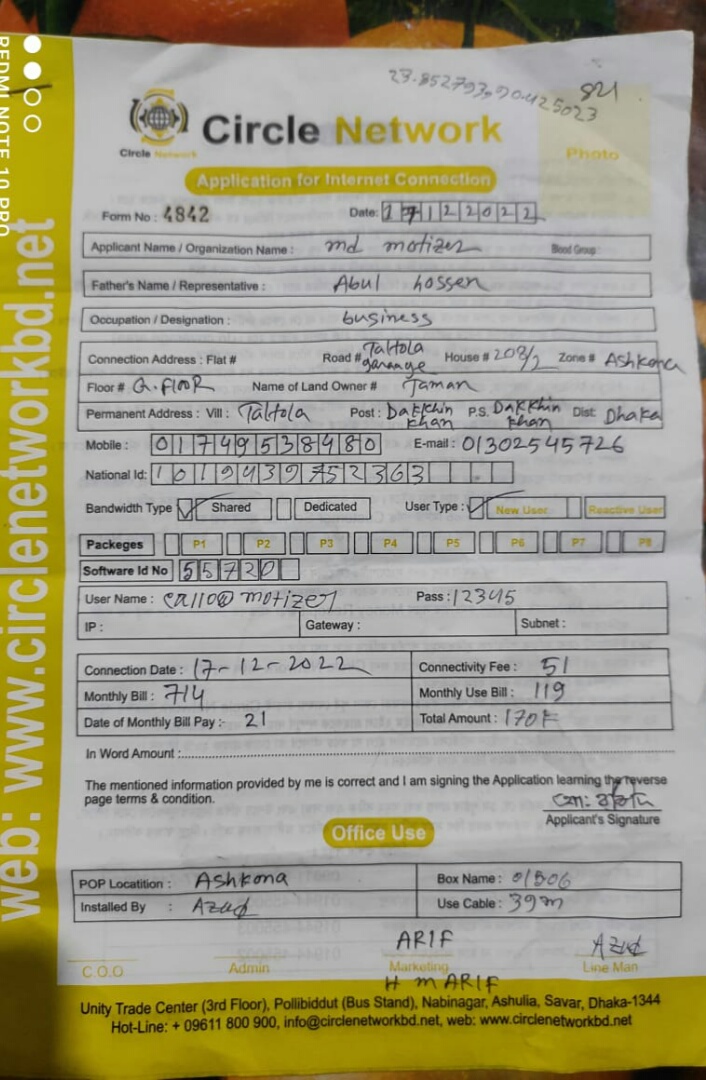 REDMI NOTE 10 PRO
web: www.circlenetworkbd.net
23.852793,90.425023
821
Circle Network
Circle Network
Photo
Application for Internet Connection
Form No : 4842 Date: 17122022
Applicant Name / Organization Name : md motizer Blood Group
Father's Name / Representative : Abul hossen
Occupation / Designation : business
Connection Address : Flat # Road # Taltola garange House # 208/2 Zone # Ashkona
Floor # G.flooR Name of Land Owner # Jaman
Permanent Address : Vill : Taltola Post : Dakkhin khan P.S. Dakkhin khan Dist: Dhaka
Mobile : 01749538480 E-mail : 01302545726
National Id: 1019439752363
Bandwidth Type Shared Dedicated User Type : New User Reactive User
Packeges P1 P2 P3 P4 P5 P6 P7 P8
Software Id No 55720
User Name : @motizer Pass : 12345
IP : Gateway : Subnet :
Connection Date : 17-12-2022 Connectivity Fee : 51
Monthly Bill : 714 Monthly Use Bill : 119
Date of Monthly Bill Pay : 21 Total Amount : 170F
In Word Amount :
The mentioned information provided by me is correct and I am signing the Application learning the reverse
page terms & condition.
Applicant's Signature
Office Use
POP Locatition : Ashkona Box Name : 01B06
Installed By : Azad Use Cable : 39m
ARIF Azad
C.O.O Admin Marketing Line Man
H m ARIF
Unity Trade Center (3rd Floor), Pollibiddut (Bus Stand), Nabinagar, Ashulia, Savar, Dhaka-1344
Hot-Line: + 09611 800 900, info@circlenetworkbd.net, web: www.circlenetworkbd.net